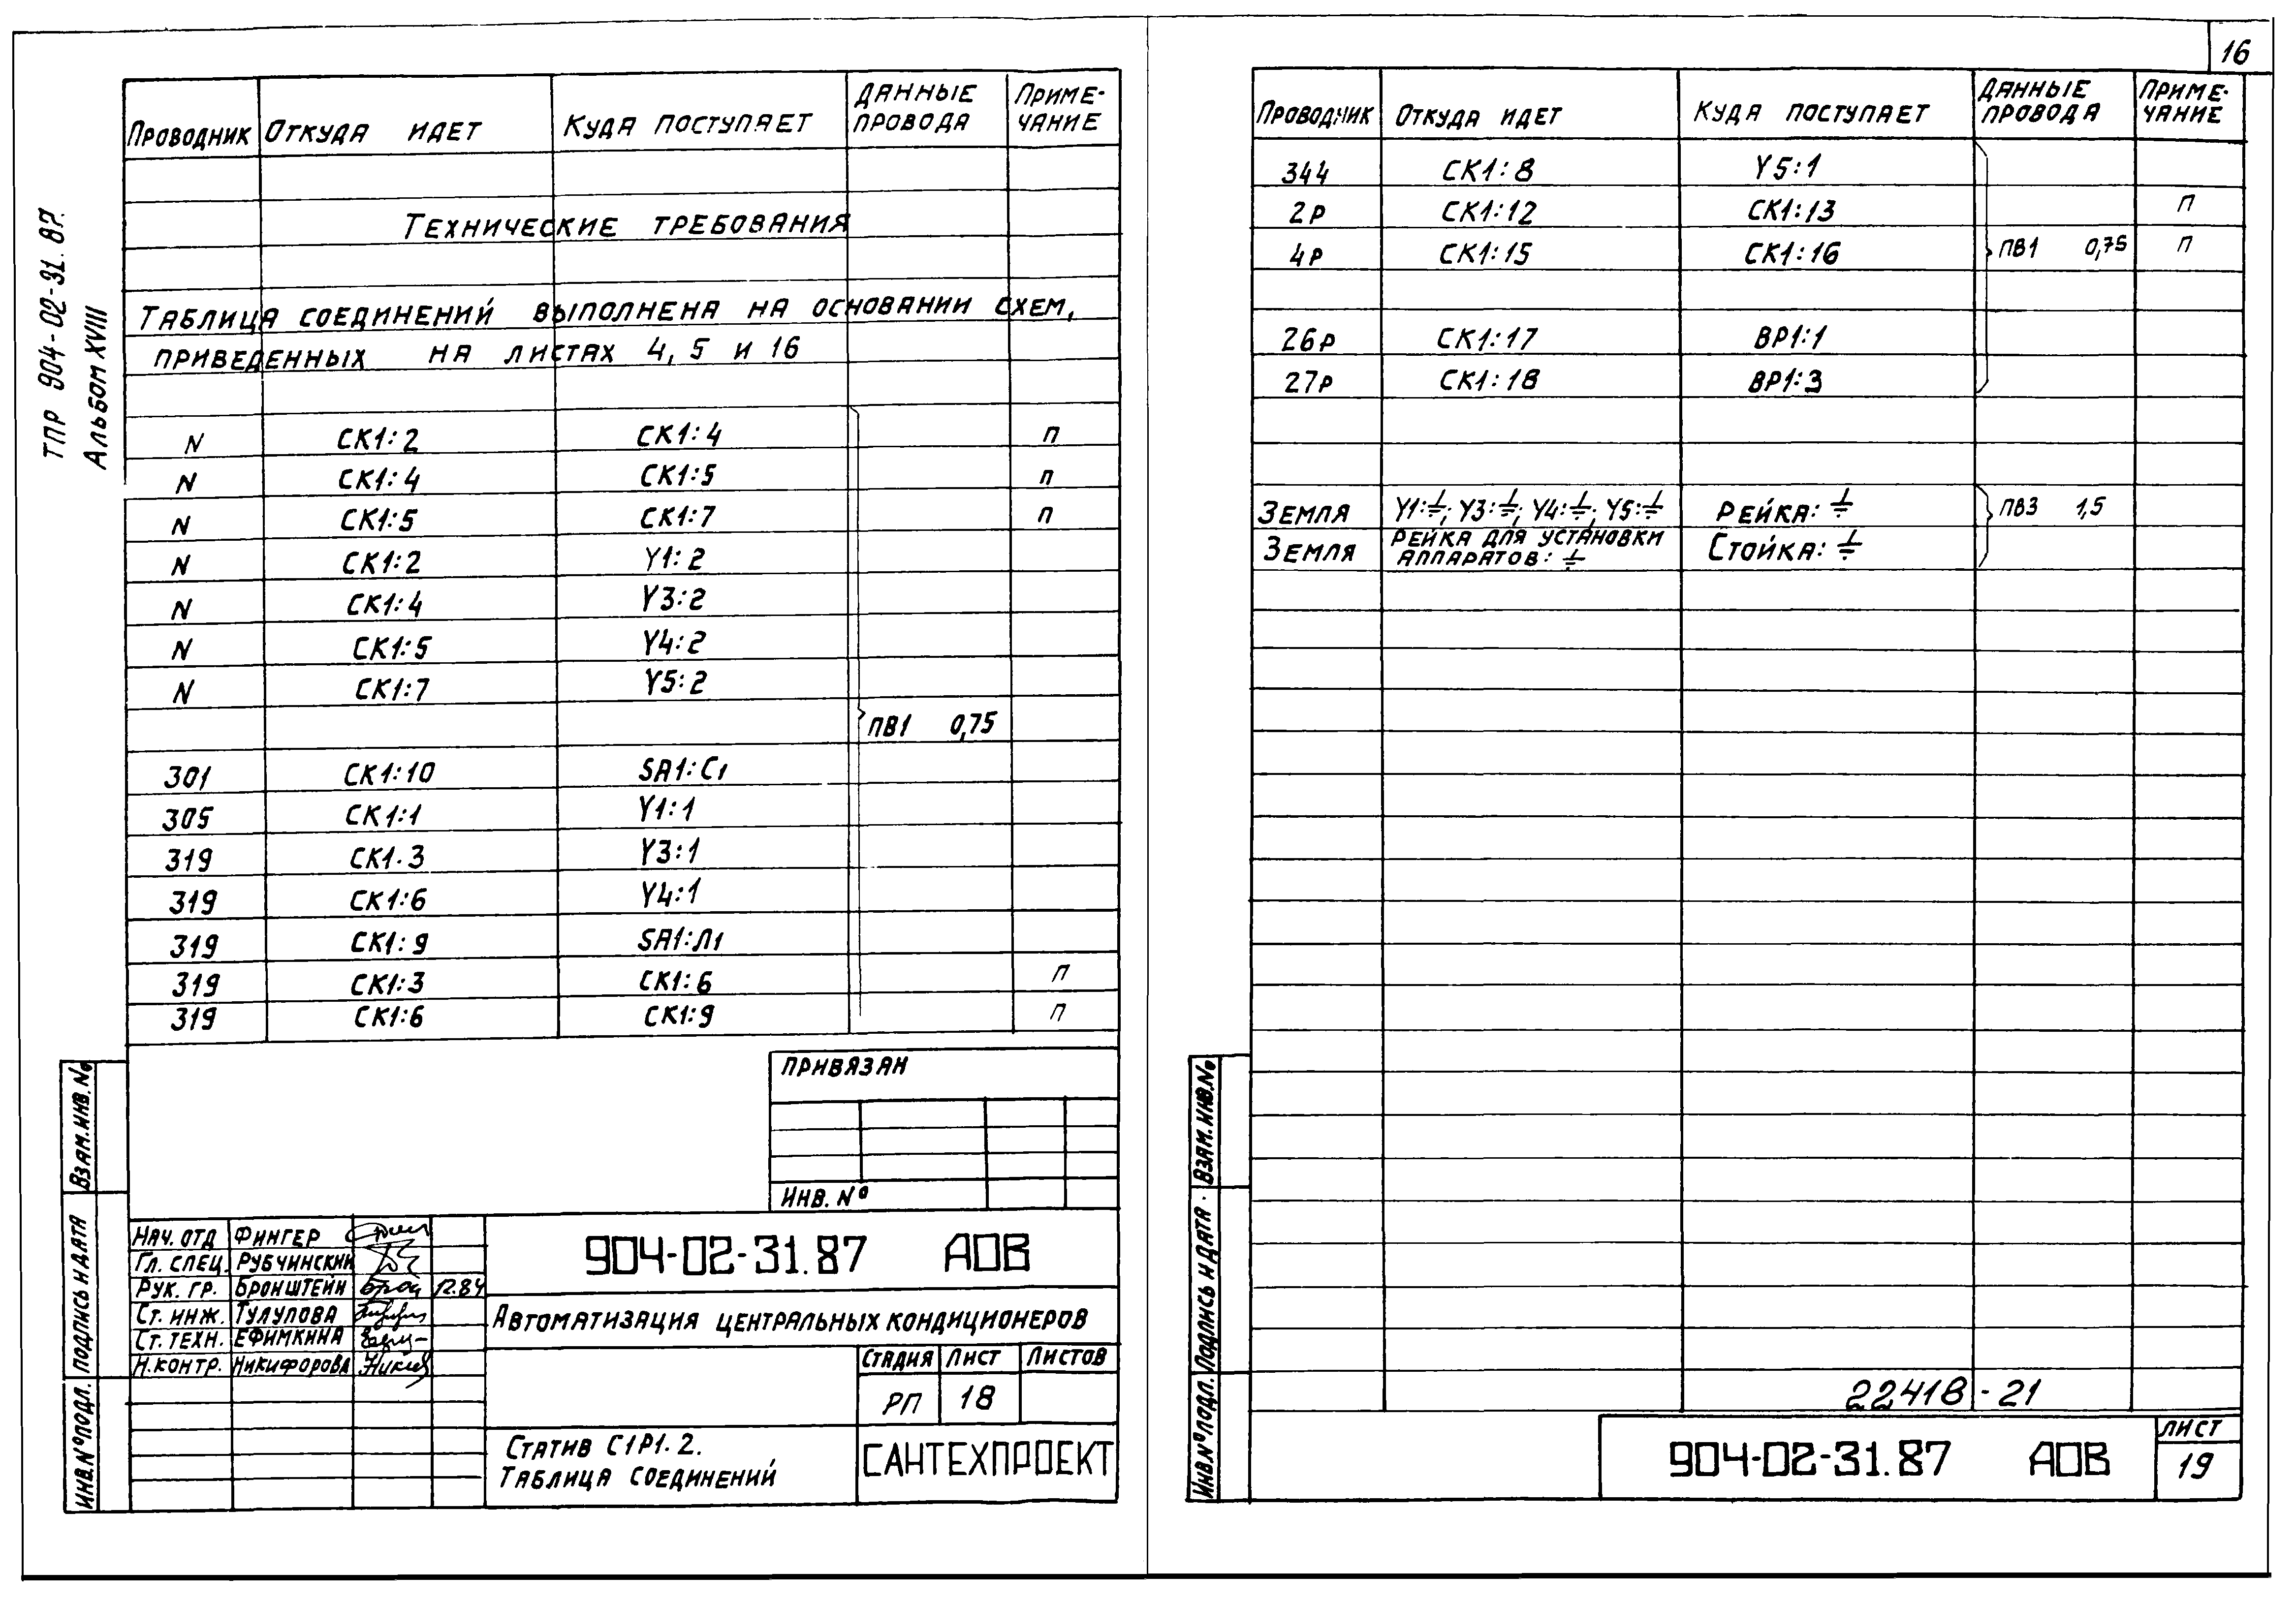 16
ТПР 904-02-31.87.
Альбом XVIII
Проводник Откуда идет Куда поступает Данные провода Приме-чание
Технические требования
Таблица соединений выполнена на основании схем,
приведенных на листах 4, 5 и 16
N СК1:2 СК1:4 п
N СК1:4 СК1:5 п
N СК1:5 СК1:7 п
N СК1:2 Y1:2
N СК1:4 Y3:2
N СК1:5 Y4:2
N СК1:7 Y5:2
ПВ1 0,75
301 СК1:10 SA1:С1
305 СК1:1 Y1:1
319 СК1.3 Y3:1
319 СК1:6 Y4:1
319 СК1:9 SA1:Л1
319 СК1:3 СК1:6 п
319 СК1:6 СК1:9 п
Привязан
Инв. №
Взам.инв.№
Подпись и дата
Инв.№подл.
Нач. отд Фингер
Гл. спец. Рубчинский
Рук. гр. Бронштейн 12.84
Ст. инж. Тулупова
Ст. техн. Ефимкина
Н.контр. Никифорова
904-02-31.87 АОВ
Автоматизация центральных кондиционеров
Стадия Лист Листов
РП 18
Статив С1Р1.2.
Таблица соединений
САНТЕХПРОЕКТ
Проводник Откуда идет Куда поступает Данные провода Приме-чание
344 СК1:8 Y5:1
2Р СК1:12 СК1:13 п
4Р СК1:15 СК1:16 ПВ1 0,75 п
26Р СК1:17 ВР1:1
27Р СК1:18 ВР1:3
Земля Y1:⏚; Y3:⏚; Y4:⏚; Y5:⏚ Рейка:⏚ ПВ3 1,5
Земля Рейка для установки
аппаратов:⏚ Стойка:⏚
Взам.инв.№
Подпись и дата
Инв.№подл.
22418-21
904-02-31.87 АОВ
Лист
19